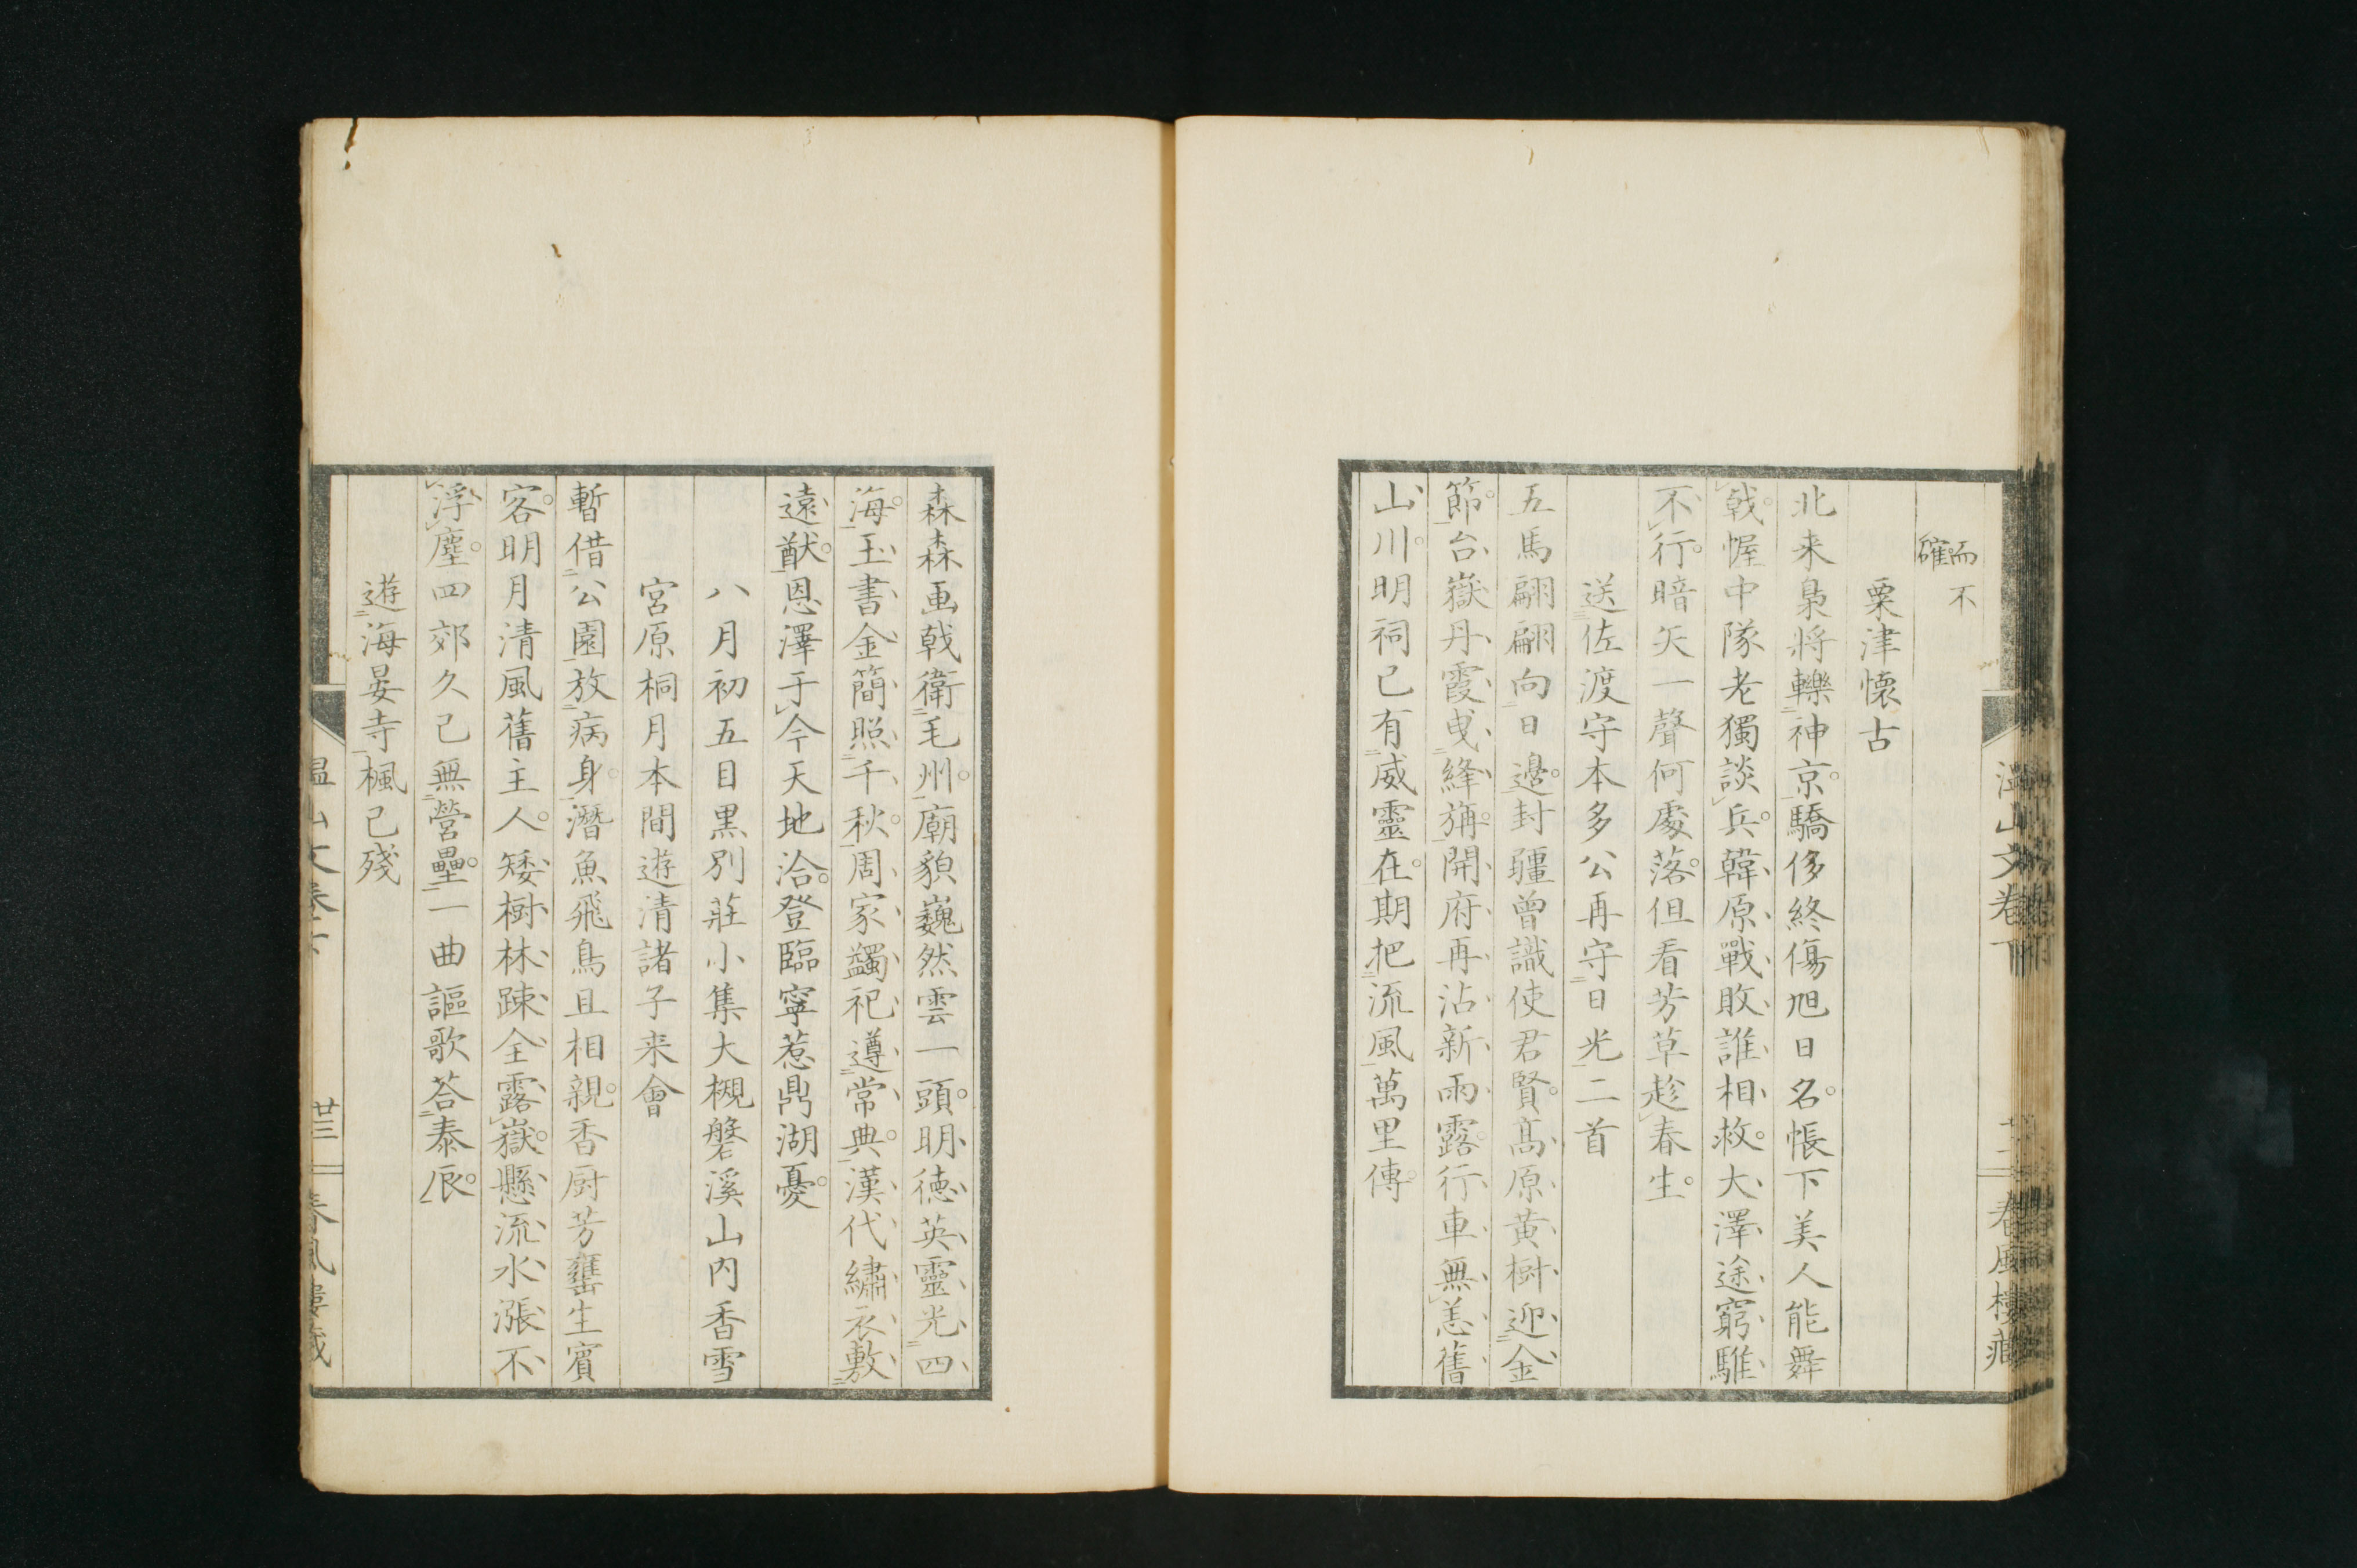 而不
確
粟津懐古
北来梟將轢神京驕侈終傷旭日名帳下美人能舞
戟幄中隊老獨談兵韓原戰敗誰相救大澤途窮騅
不行暗矢一聲何處落但看芳草趁春生
送佐渡守本多公再守日光二首
五馬翩翩向日邊封疆曾識使君賢髙原黄樹迎金
節台嶽丹霞曳絳旃開府再沾新雨露行車無恙舊
山川明祠已有威靈在期把流風萬里傳
温山文巻下
春風樓藏
森森画戟衛毛州廟貌巍然雲一頭明徳英靈光四
海玉書金簡照千秋周家蠲祀遵常典漢代繡衣敷
遠猷恩澤于今天地洽登臨寧惹鼎湖憂
八月初五日黒別莊小集大槻磐溪山内香雪
宮原桐月本間遊清諸子来會
暫借公園放病身潛魚飛鳥且相親香厨芳罋生賓
客明月清風舊主人矮樹林踈全露嶽懸流水漲不
浮塵四郊久已無營壘一曲謳歌荅泰辰
遊海晏寺楓已殘
温山文巻下
廿三
春風樓藏